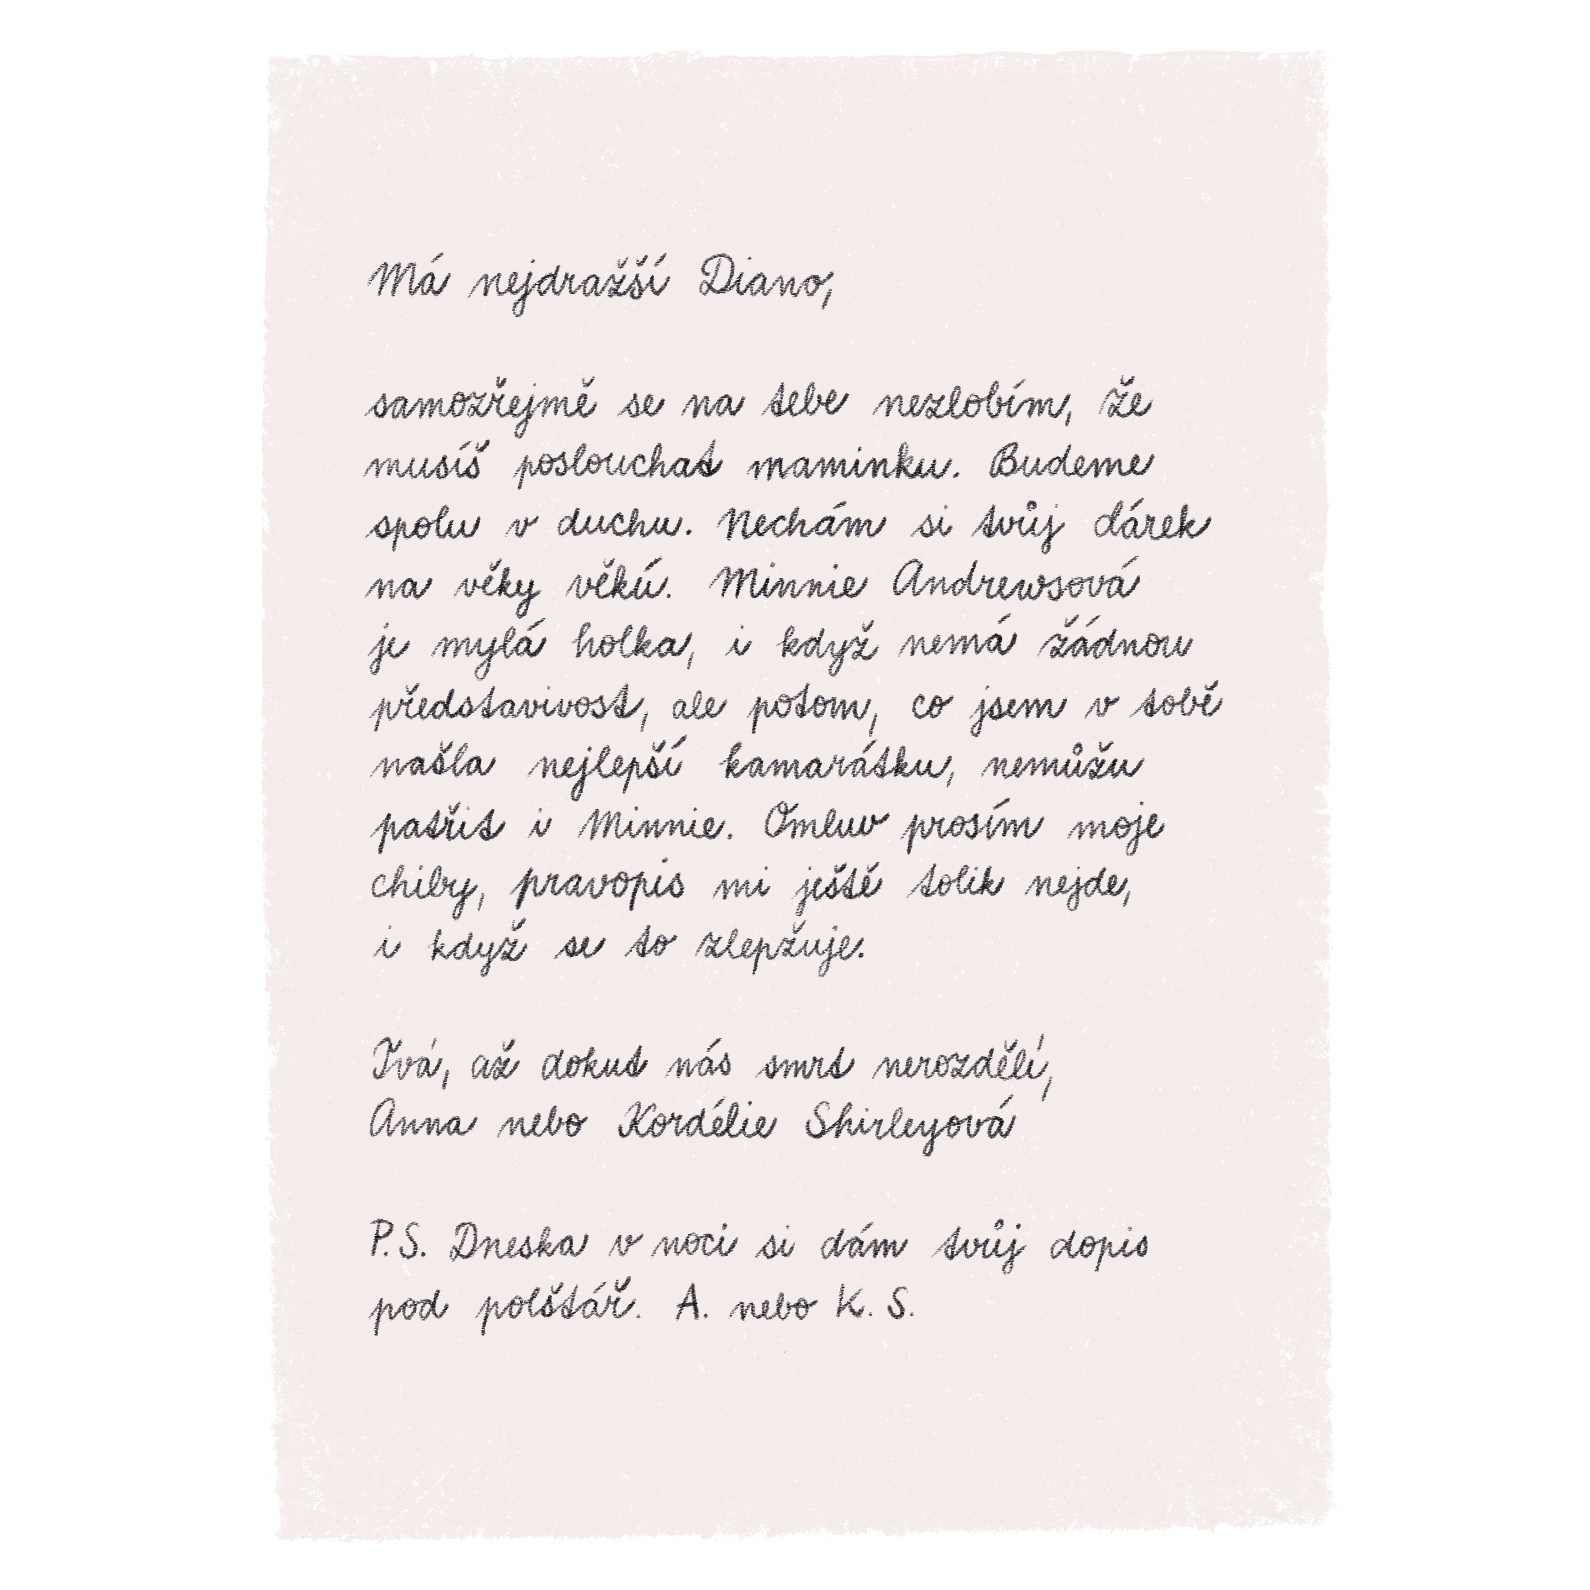 Má nejdražší Diano,
samozřejmě se na tebe nezlobím, že
musíš poslouchat maminku. Budeme
spolu v duchu. Nechám si tvůj dárek
na věky věkú. Minnie Andrewsová
je mylá holka, i když nemá žádnou
představivost, ale potom, co jsem v tobě
našla nejlepší kamarátku, nemůžu
patřit i Minnie. Omluv prosím moje
chiby, pravopis mi ještě tolik nejde,
i když se to zlepžuje.
Tvá, až dokut nás smrt nerozdělí,
Anna nebo Kordélie Shirleyová
P.S. Dneska v noci si dám tvůj dopis
pod polštář. A. nebo K. S.